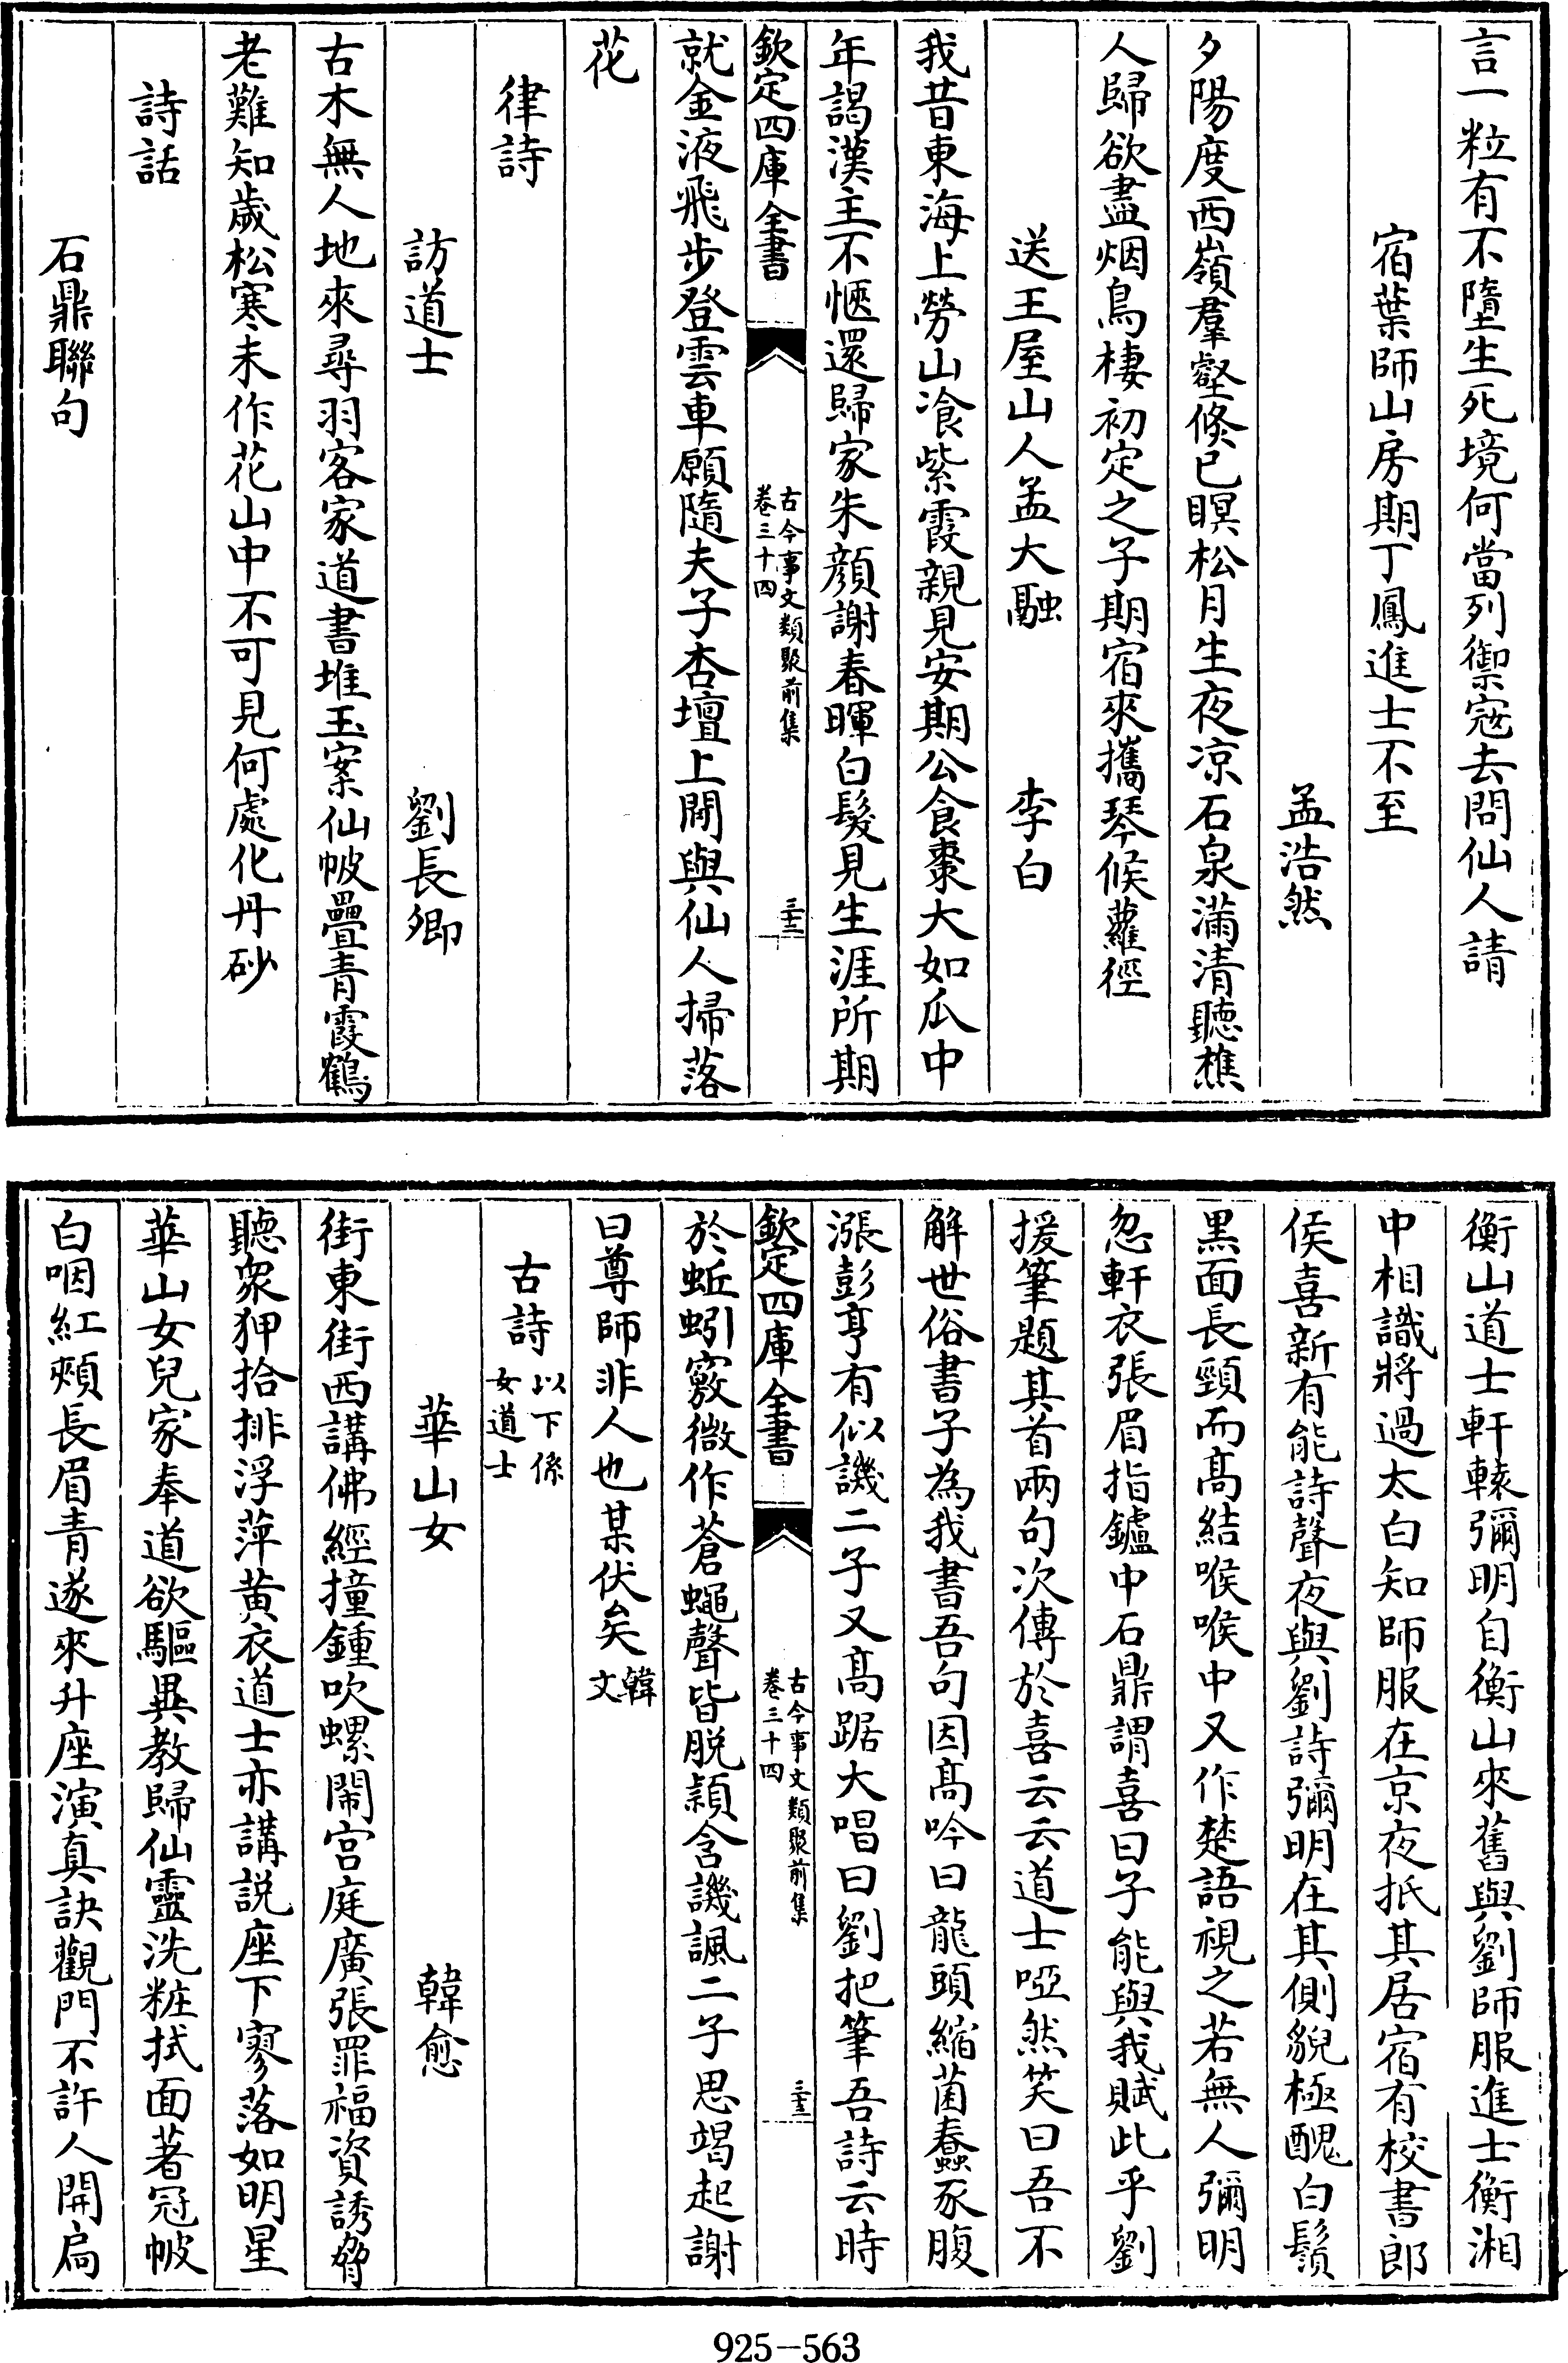 言一粒有不墮生死境何當列禦寇去問仙人請
宿葉師山房期丁鳳進士不至
孟浩然
夕陽度西嶺羣壑倐已暝松月生夜凉石泉滿清聽樵
人歸欲盡烟鳥棲初定之子期宿來攜琴候蘿徑
送王屋山人孟大融 李白
我昔東海上勞山飡紫霞親見安期公食棗大如瓜中
年謁漢主不愜還歸家朱顔謝春暉白髮見生涯所期
欽定四庫全書 古今事文類聚前集 卷三十四 三十二
就金液飛步登雲車願隨夫子杏壇上閒與仙人掃落
花
律詩
訪道士 劉長卿
古木無人地來尋羽客家道書堆玉案仙帔疊青霞鶴
老難知歲松寒未作花山中不可見何處化丹砂
詩話
石鼎聯句
衡山道士軒轅彌明自衡山來舊與劉師服進士衡湘
中相識將過太白知師服在京夜抵其居宿有校書郎
侯喜新有能詩聲夜與劉詩彌明在其側貌極醜白鬚
黒面長頸而髙結喉喉中又作楚語視之若無人彌明
忽軒衣張眉指鑪中石鼎謂喜曰子能與我賦此乎劉
援筆題其首兩句次傳於喜云云道士啞然笑曰吾不
解世俗書子為我書吾句因髙吟曰龍頭縮菌蠢豕腹
漲彭亨有似譏二子又髙踞大唱曰劉把筆吾詩云時
欽定四庫全書 古今事文類聚前集 卷三十四 三十三
於蚯蚓竅微作蒼蠅聲皆脱頴含譏諷二子思竭起謝
曰尊師非人也某伏矣 韓文
古詩 以下係女道士
華山女 韓愈
街東街西講佛經撞鍾吹螺閙宫庭廣張罪福資誘脅
聽衆狎拾排浮萍黄衣道士亦講説座下寥落如明星
華山女兒家奉道欲驅異教歸仙靈洗粧拭面著冠帔
白咽紅頰長眉青遂來升座演真訣觀門不許人開扄
925-563